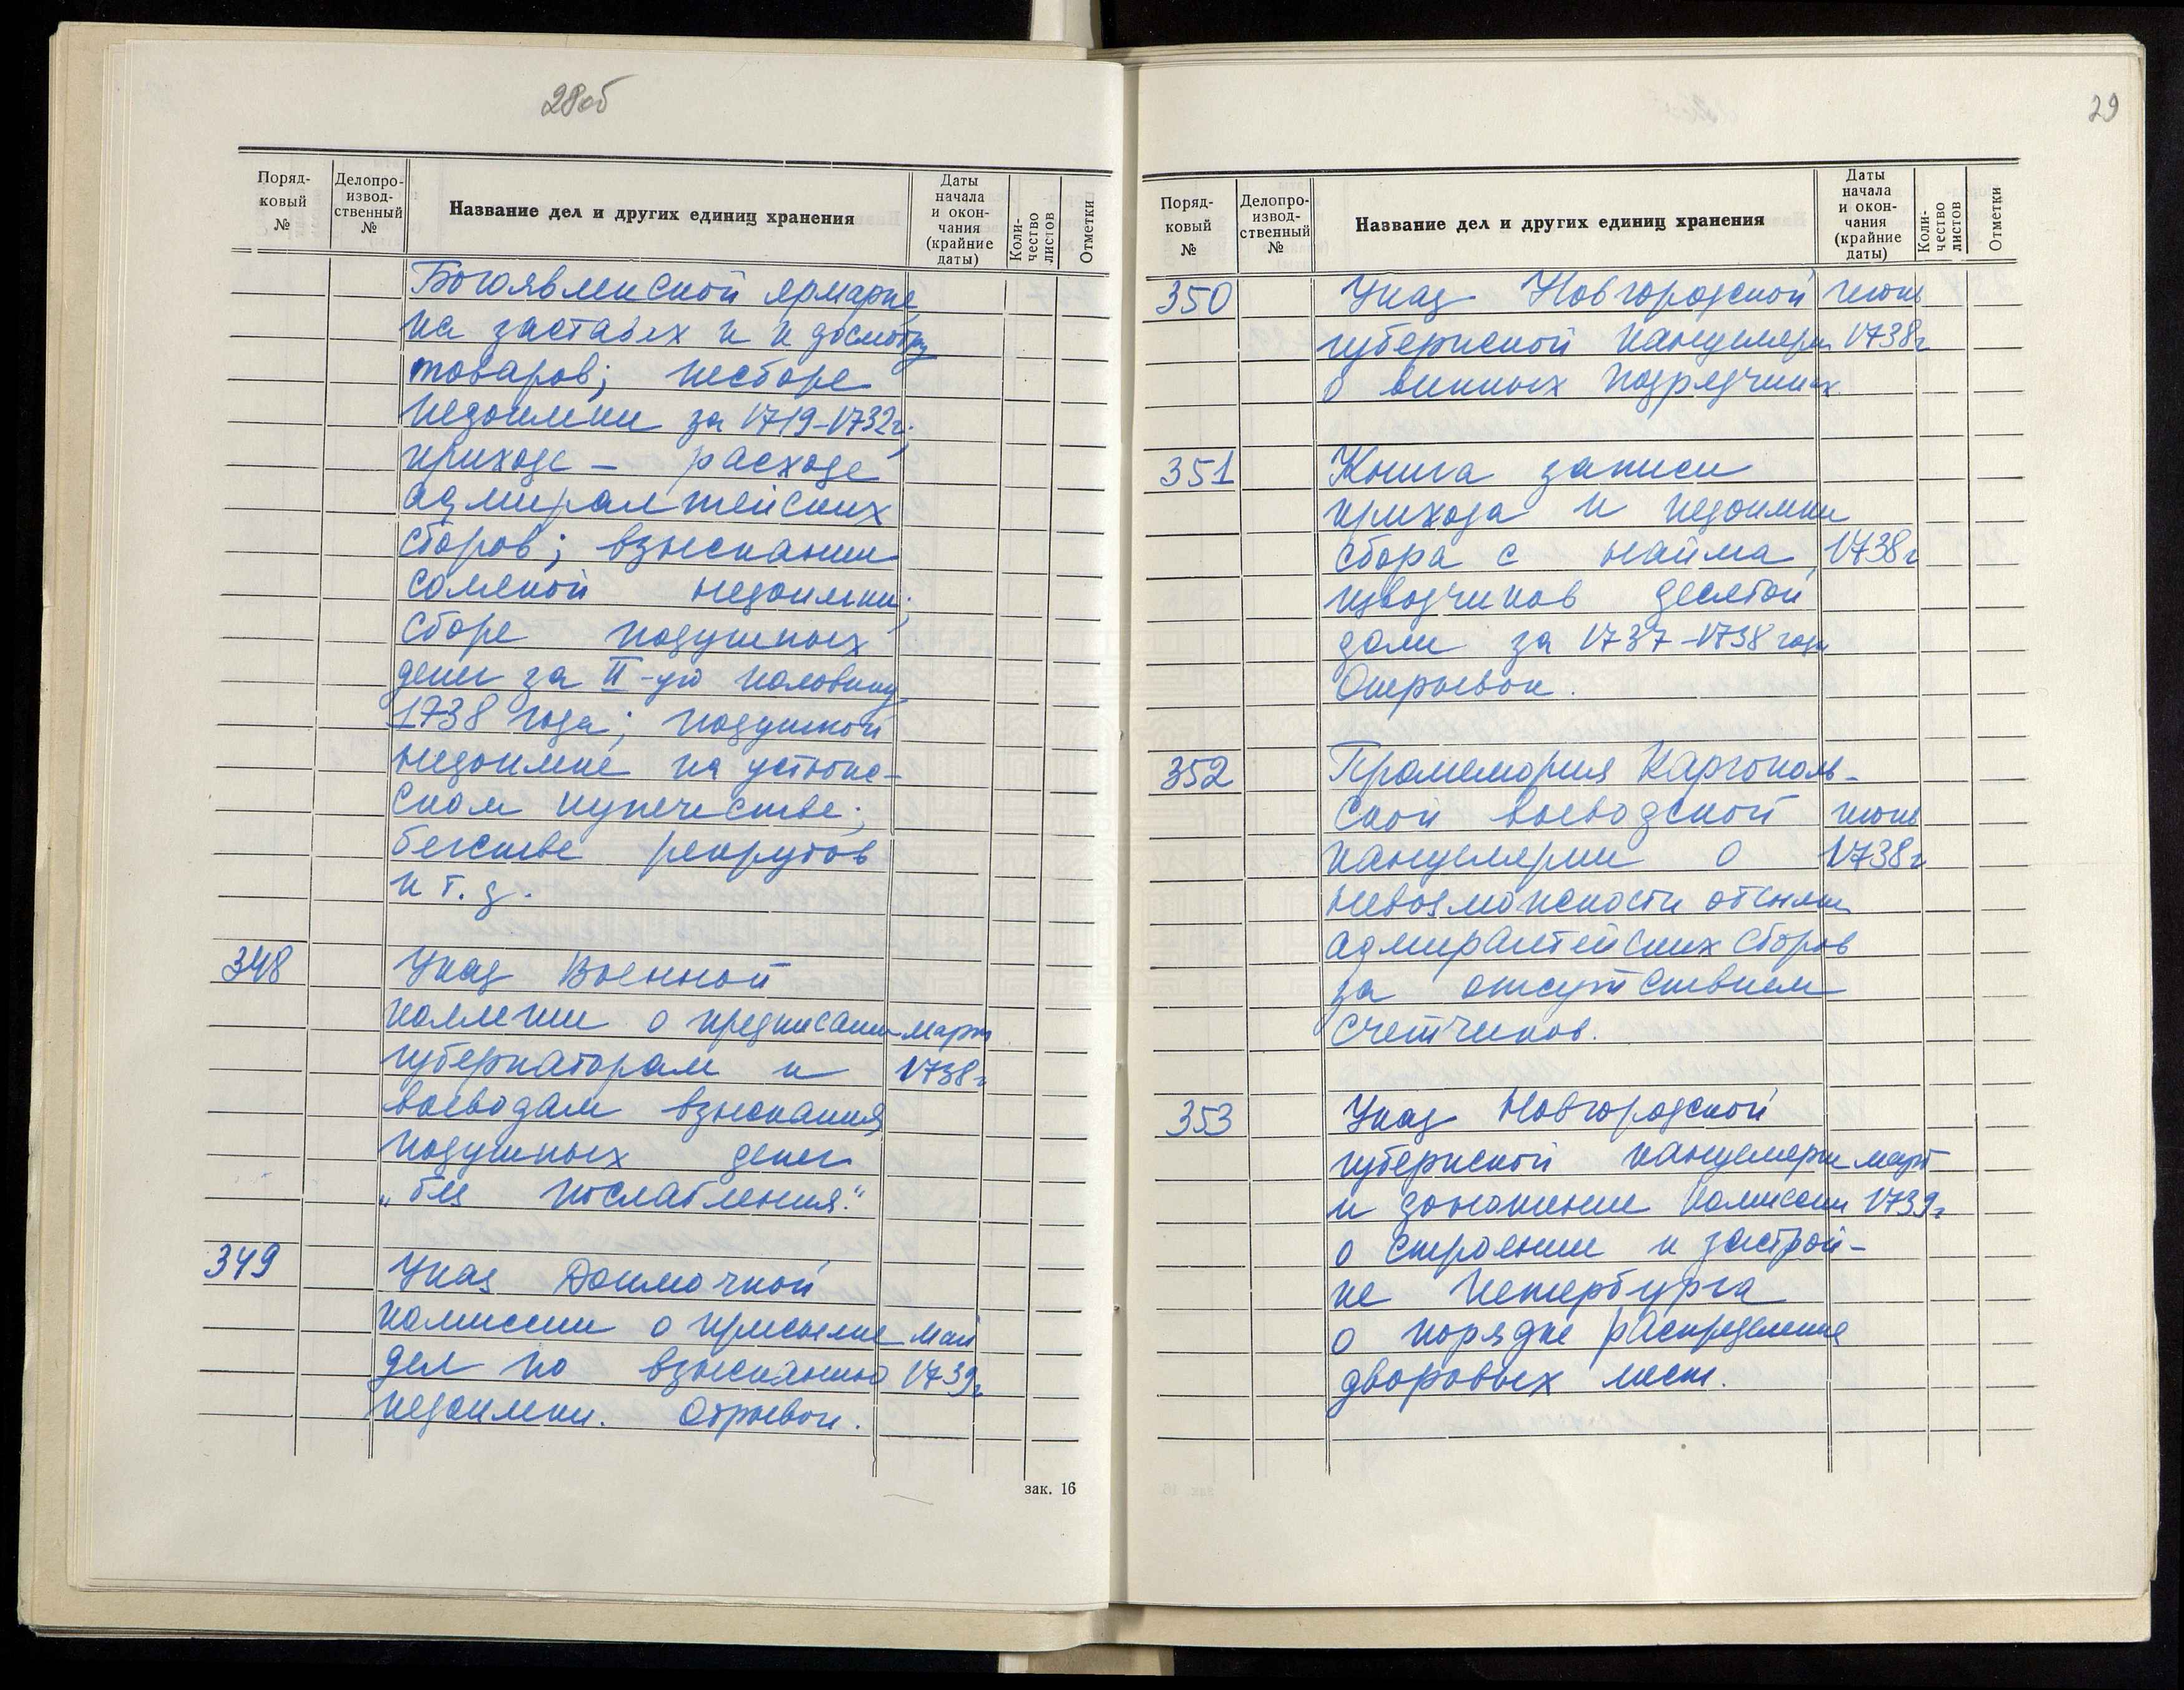 28об
Поряд-
ковый
№
Делопро-
извод-
ственный
№
Название дел и других единиц хранения
Даты
начала
и окон-
чания
(крайние
даты)
Коли-
чество
листов
Отметки
Богоявленской ярмарке,
на заставах и к досмотру
товаров; несборе
недоимки за 1719-1732г.;
приходе - расходе
адмиралтейских
сборов; взыскании
соляной недоимки;
сборе подушных
денег за II-ую половину
1738 года; подушной
недоимке на устюжс-
ском купечестве;
бегстве рекрутов
и т. д.
348 Указ Военной
коллегии о предписании март
губернаторам и 1738г
воеводам взыскания
подушных денег
„без послабления."
349 Указ Доимочной
комиссии о присылке май
дел по взысканию 1739г
недоимки. Отрывок.
зак. 16
29
Поряд-
ковый
№
Делопро-
извод-
ственный
№
Название дел и других единиц хранения
Даты
начала
и окон-
чания
(крайние
даты)
Коли-
чество
листов
Отметки
350 Указ Новгородской
губернской канцелярии 1738г
о винных подрядчиках
351 Книга записи
прихода и недоимки
сбора с найма 1738г
извозчиков десятой
доли за 1737-1738 годы
Отрывок.
352 Промемория Каргополь-
ской воеводской
канцелярии о 1738г
невозможности отсылки
адмиралтейских сборов
за отсутствием
счетчиков.
353 Указ Новгородской
губернской канцелярии март
и доношение комиссии 1739г
о строении и застрой-
ке Петербурга
о порядке распределения
дворовых мест.